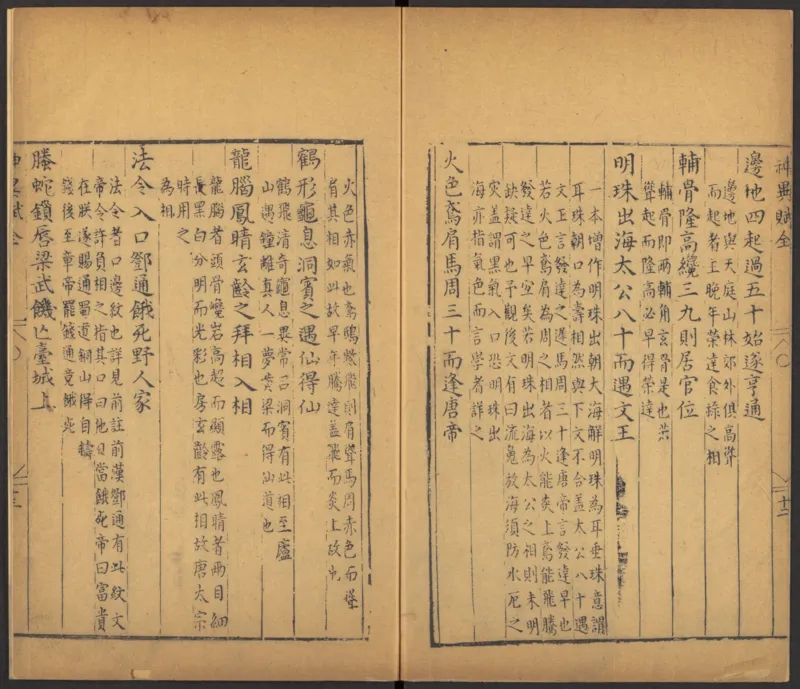 神異賦全
十二
邊地四起過五十始遂亨通
邊地與天庭山林郊外俱高聳
而起者主晚年榮達食祿之相
輔骨隆高纔三九則居官位
輔骨即兩輔角玄骨是也若
聳起而隆高必早得榮達
明珠出海太公八十而遇文王
一本增作明珠出朝大海解明珠為耳垂珠意謂
耳珠朝口為壽相然與下文不合蓋太公八十遇
文王言發達之遲馬周三十逢唐帝言發達早也
若火色鳶肩為周之相者以火能炎上鳶能飛騰
發達之早宜矣若明珠出海為太公之相則未明
缺疑可也予觀後文有曰流鬼放海須防水厄之
災蓋謂黑氣入口恐明珠出
海亦指氣色而言學者詳之
火色鳶肩馬周三十而逢唐帝
火色赤氣也鳶鴟也飛則肩聳馬周赤色而
肩其相如此故早年騰達蓋飛而炎上故也
鶴形龜息洞賓之遇仙得仙
鶴飛清奇龜息異常呂洞賓有此相至廬
山遇鐘離真人一夢黃梁而得仙道也
龍腦鳳睛玄齡之拜相入相
龍腦者頭骨巉岩高起而顯露也鳳睛者兩目細
長黑白分明而光彩也房玄齡有此相故唐太宗
時用之
為相
法令入口鄧通餓死野人家
法令者口邊紋也詳見前註前漢鄧通有此紋文
帝令許負相之指其口曰他日當餓死帝曰富貴
在朕遂賜通蜀道銅山得自鑄
錢後至章帝罷錢通竟餓死
螣蛇鎖唇梁武饑亡臺城上